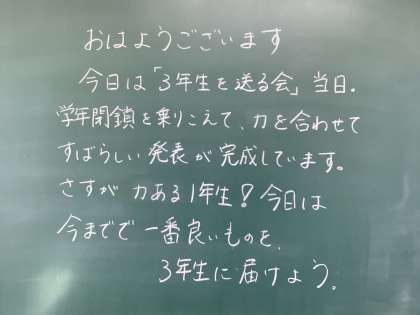 おはようございます
今日は「3年生を送る会」当日.
学年閉鎖を乗りこえて、力を合わせて
すばらしい発表が完成しています。
さすが力ある1年生！今日は
今までで一番良いものを、
3年生に届けよう。